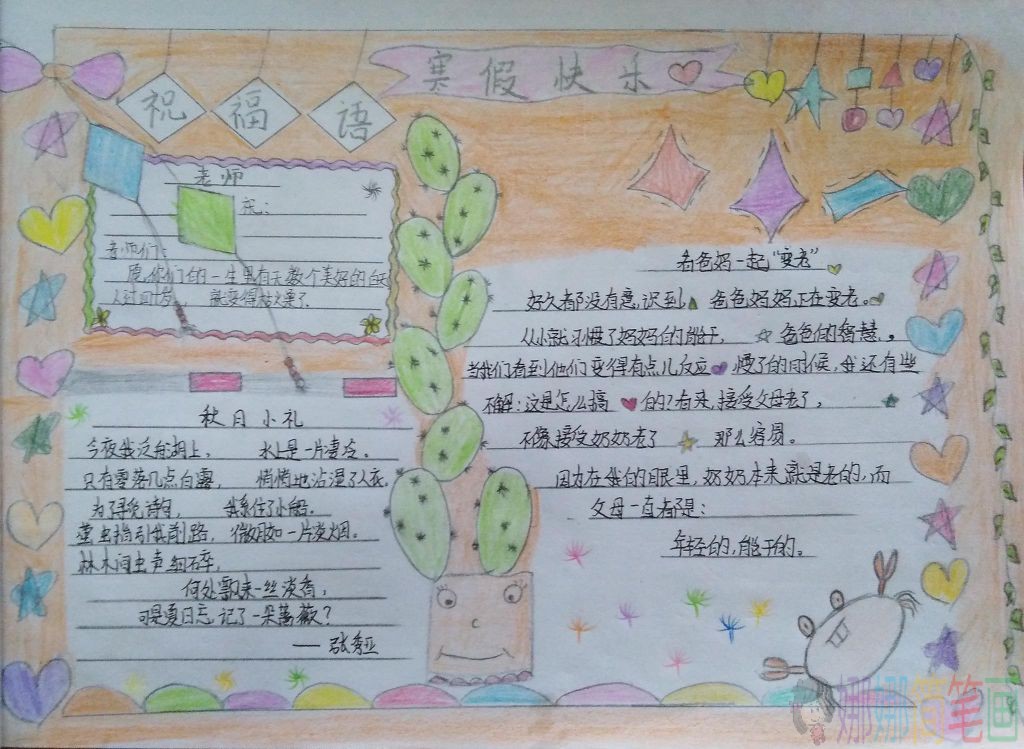 寒假快乐
祝福语
老师
祝:
老师们:
愿你们的一生里有无数个美好的
看爸妈一起“变老”
好久都没有意识到 爸爸妈妈正在变老。
从小就习惯了妈妈的能干, 爸爸的智慧,
当我们看到他们变得有点儿反应 慢了的时候,我还有些
不解:这是怎么搞 的?看来,接受父母老了,
不像接受奶奶老了 那么容易。
因为在我的眼里,奶奶本来就是老的,而
父母一直都是:
年轻的,能干的。
秋月小礼
今夜我泛舟湖上, 水上是一片凄冷。
只有零落几点白露, 悄悄地沾湿了人衣。
为了寻觅诗句, 我系住了小船。
萤虫指引我前路, 微如一片炎烟。
林木间虫声细碎,
何处飘来一丝淡香,
可是夏日忘记了一朵蔷薇?
——张秀亚
娜娜简笔画